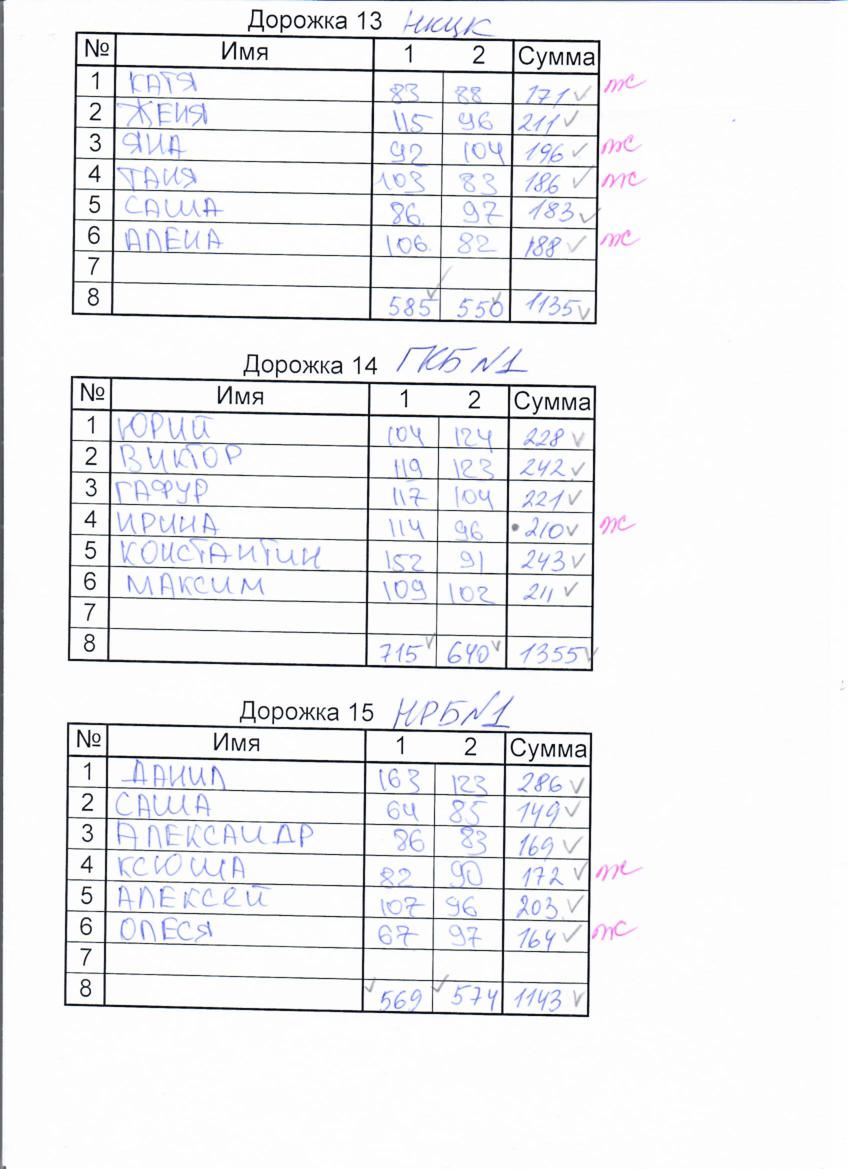 Дорожка 13 НКЦК
№ Имя 1 2 Сумма
1 КАТЯ 83 88 171 ✓ ж
2 ЖЕНЯ 115 96 211 ✓
3 ЯНА 92 104 196 ✓ ж
4 ТАНЯ 103 83 186 ✓ ж
5 САША 86 97 183 ✓
6 АЛЕНА 106 82 188 ✓ ж
7
8 585 ✓ 550 ✓ 1135 ✓
Дорожка 14 ГКБ №1
№ Имя 1 2 Сумма
1 ЮРИЙ 104 124 228 ✓
2 ВИКТОР 119 123 242 ✓
3 ГАФУР 117 104 221 ✓
4 ИРИНА 114 96 210 ✓ ж
5 КОНСТАНТИН 152 91 243 ✓
6 МАКСИМ 109 102 211 ✓
7
8 715 ✓ 640 ✓ 1355 ✓
Дорожка 15 НРБ №1
№ Имя 1 2 Сумма
1 ДАНИЛ 163 123 286 ✓
2 САША 64 85 149 ✓
3 АЛЕКСАНДР 86 83 169 ✓
4 КСЮША 82 90 172 ✓ ж
5 АЛЕКСЕЙ 107 96 203 ✓
6 ОЛЕСЯ 67 97 164 ✓ ж
7
8 ✓ 569 ✓ 574 1143 ✓